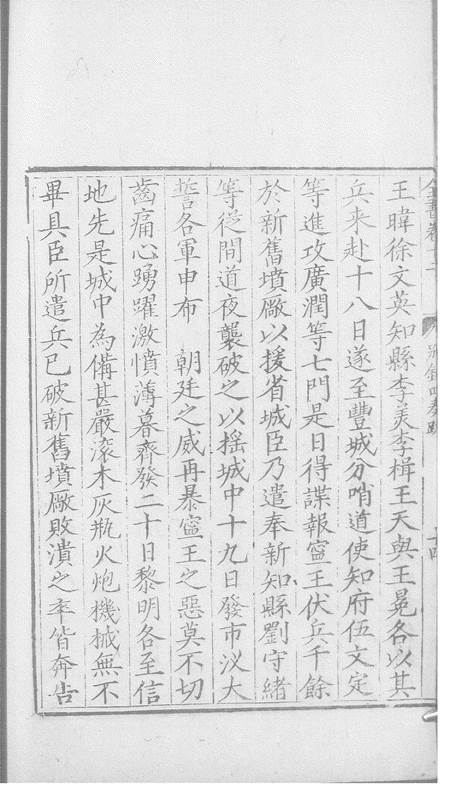 全書卷十二 別錄四奏疏 十四
王暐徐文英知縣李美李楫王天與王冕各以其
兵來赴十八日遂至豐城分哨道使知府伍文定
等進攻廣潤等七門是日得諜報寧王伏兵千餘
於新舊墳廠以援省城臣乃遣奉新知縣劉守緒
等從間道夜襲破之以搖城中十九日發市汊大
誓各軍申布 朝廷之威再暴寧王之惡莫不切
齒痛心踴躍激憤薄暮齊發二十日黎明各至信
地先是城中為備甚嚴滚木灰瓶火炮機械無不
畢具臣所遣兵已破新舊墳廠敗潰之卒皆奔告